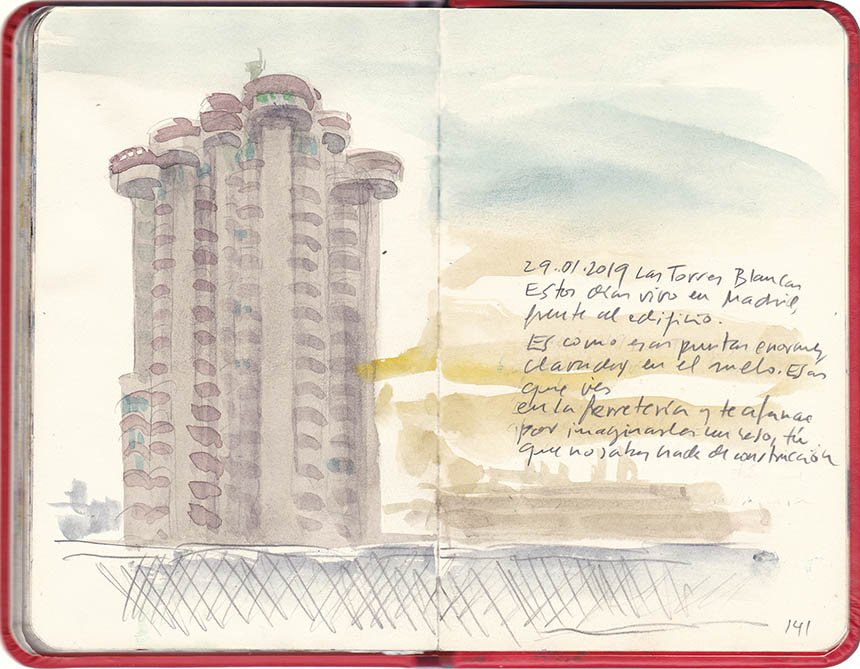 29.01.2019 Las Torres Blancas
Estos días vivo en Madrid,
frente al edificio.
Es como esas puntas enormes
clavadas en el suelo. Esas
que ves
en la ferretería y te afanas
por imaginarles un uso, tú
que no sabes nada de construcción
141